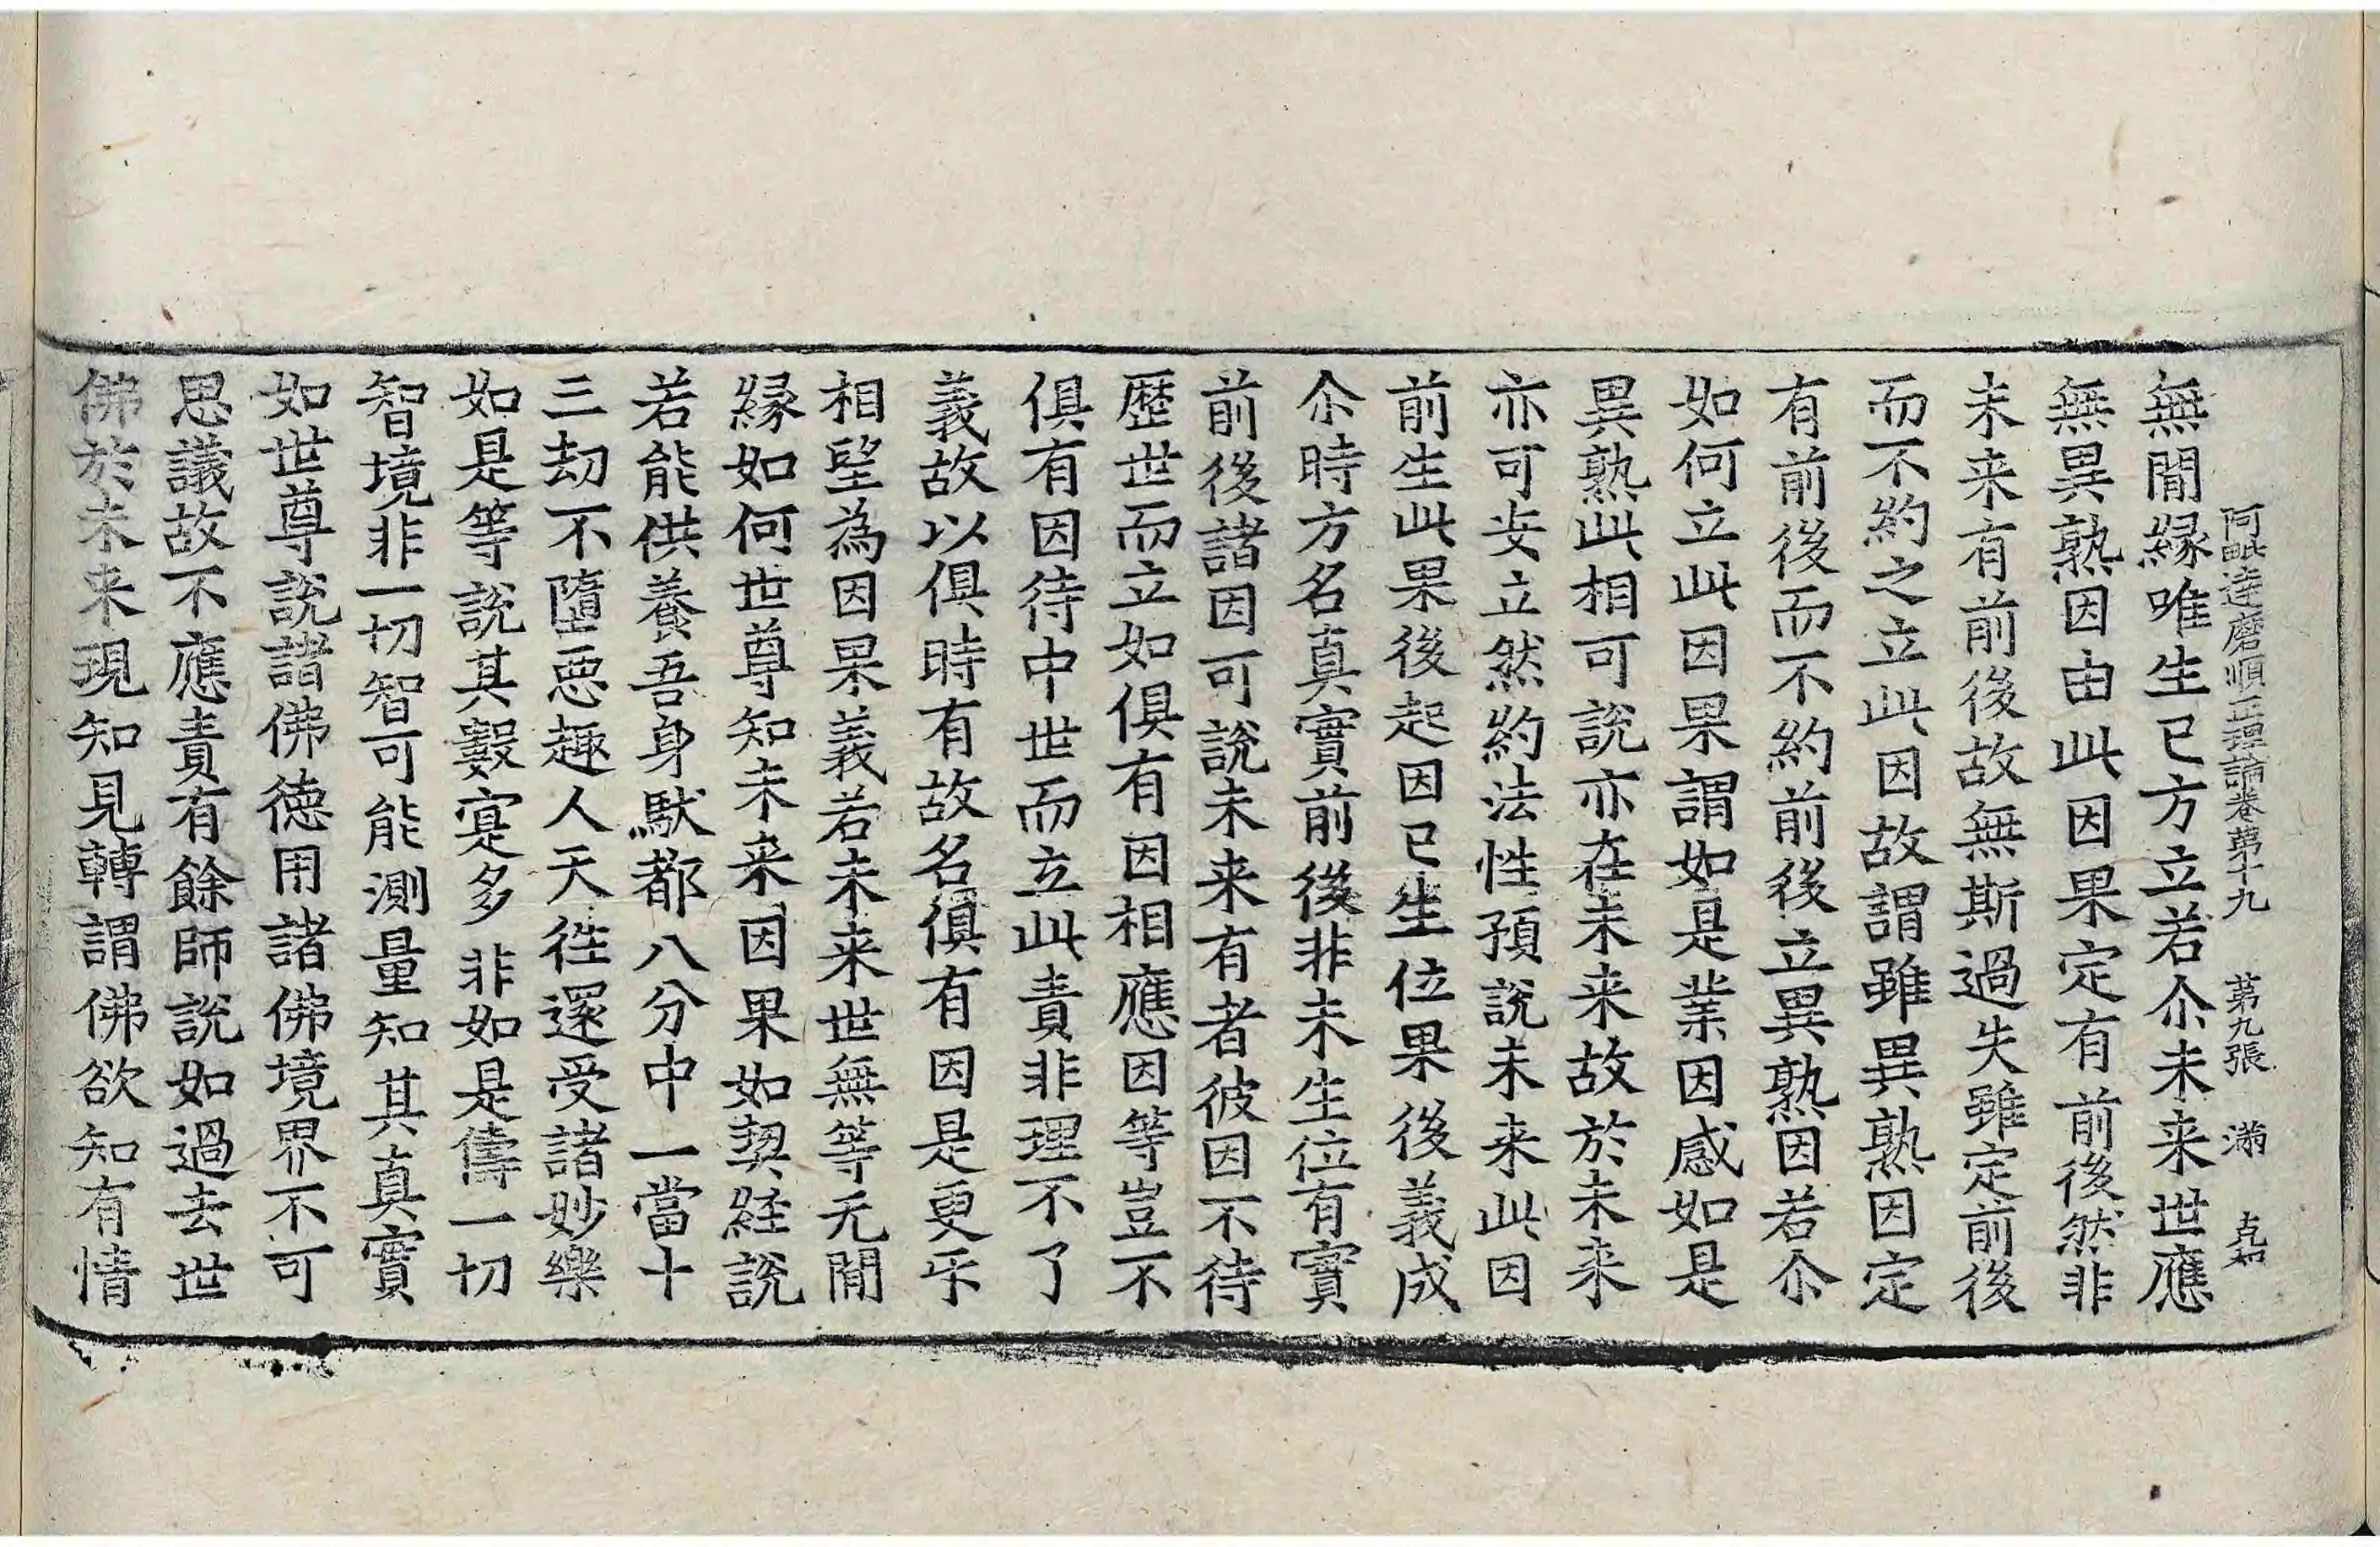 阿毗達磨順正理論卷苐十九 苐九張 滿
無閒縁唯生已方立若尒未来世應
無異熟因由此因果定有前後然非
未来有前後故無斯過失雖定前後
而不約之立此因故謂雖異熟因定
有前後而不約前後立異熟因若尒
如何立此因果謂如是業因感如是
異熟此相可說亦在未来故於未来
亦可安立然約法性預說未来此因
前生此果後起因已生位果後義成
尒時方名真實前後非未生位有實
前後諸因可說未来有者彼因不待
歷世而立如俱有因相應因等豈不
俱有因待中世而立此責非理不了
義故以俱時有故名俱有因是更乎
相望為因果義若未来世無等无閒
縁如何世尊知未来因果如契經說
若能供養吾身馱都八分中一當十
三劫不墮惡趣人天徃還受諸妙樂
如是等說其數寔多非如是儔一切
智境非一切智可能測量知其真實
如世尊說諸佛德用諸佛境界不可
思議故不應責有餘師說如過去世
佛於未来現知見轉謂佛欲知有情